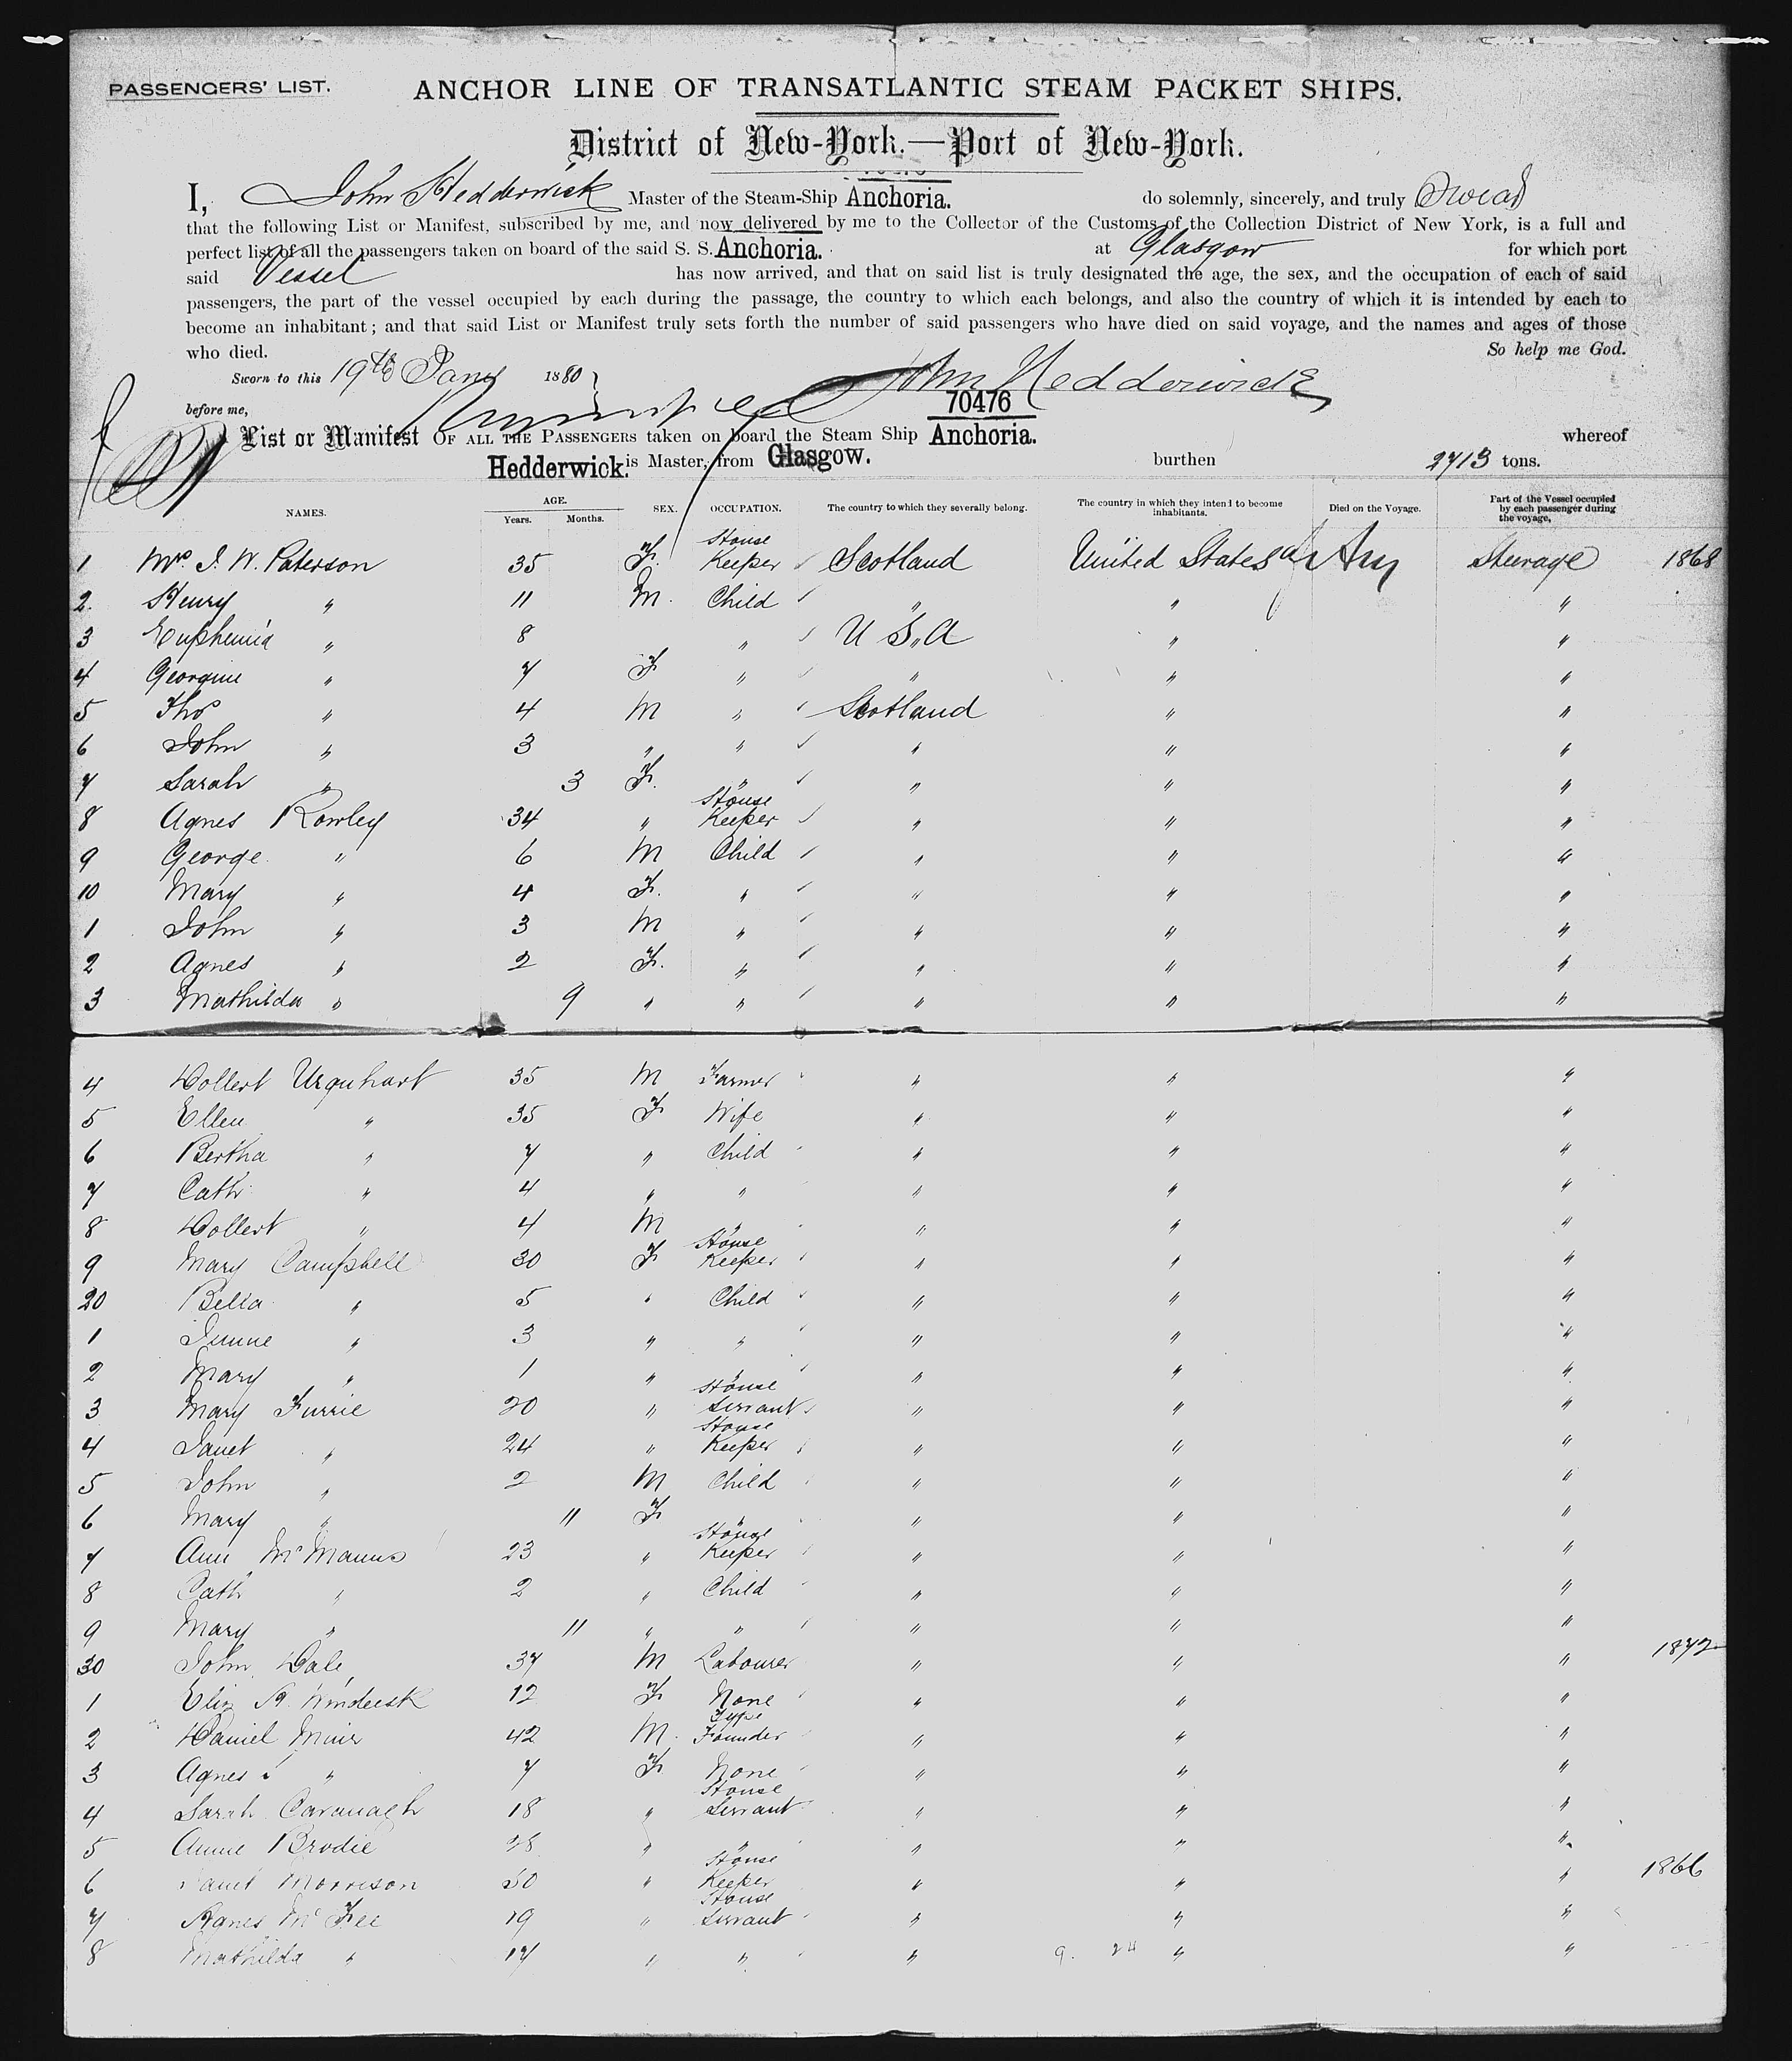 PASSENGERS' LIST. ANCHOR LINE OF TRANSATLANTIC STEAM PACKET SHIPS.
District of New-York.—Port of New-York.
I, John Hedderwick Master of the Steam-Ship Anchoria. do solemnly, sincerely, and truly Swear
that the following List or Manifest, subscribed by me, and now delivered by me to the Collector of the Customs of the Collection District of New York, is a full and
perfect list of all the passengers taken on board of the said S. S. Anchoria. at Glasgow for which port
said Vessel has now arrived, and that on said list is truly designated the age, the sex, and the occupation of each of said
passengers, the part of the vessel occupied by each during the passage, the country to which each belongs, and also the country of which it is intended by each to
become an inhabitant; and that said List or Manifest truly sets forth the number of said passengers who have died on said voyage, and the names and ages of those
who died. So help me God.
Sworn to this 19th Jany 1880
John Hedderwick
before me,
70476
List or Manifest OF ALL THE PASSENGERS taken on board the Steam Ship Anchoria. whereof
Hedderwick. is Master, from Glasgow. burthen 2713 tons.
NAMES. AGE. Years. Months. SEX. OCCUPATION. The country to which they severally belong. The country in which they intend to become inhabitants. Died on the Voyage. Part of the Vessel occupied by each passenger during the voyage,
1 Mrs. J. W. Paterson 35 F. House Keeper Scotland United States of Steerage 1868
2. Henry " 11 M. Child " " "
3 Euphemia " 8 " U.S.A " "
4 Georgine " 7 F " " " "
5 Thos " 4 M " Scotland " "
6 John " 3 " " " " "
7 Sarah " 3 F. " " " "
8 Agnes Rowley 34 " House Keeper " " "
9 George " 6 M Child " " "
10 Mary " 4 F. " " " "
1 John " 3 M " " " "
2 Agnes " 2 F. " " " "
3 Mathilda " 9 " " " " "
4 Urquhart 35 M Farmer " " "
5 Ellen " 35 F Wife " " "
6 Bertha " 7 " Child " " "
7 Cath " 4 " " " " "
8 " 4 M " " " "
9 Mary Campbell 30 F House Keeper " " "
20 Bella " 5 " Child " " "
1 " 3 " " " " "
2 Mary " 1 " " " " "
3 Mary Furrie 20 " House Servant " " "
4 Janet " 24 " House Keeper " " "
5 John " 2 M Child " " "
6 Mary " 11 F " " " "
7 Ann McManus 23 " House Keeper " " "
8 Cath " 2 " Child " " "
9 Mary " 11 " " " " "
30 John Dale 37 M Labourer " " " 1872
1 Eliz 12 F None " " "
2 Daniel Muir 42 M. Type Founder " " "
3 Agnes " 7 F None " " "
4 Sarah Cavanagh 18 " House Servant " " "
5 Annie Brodie 28 " " " " "
6 Janet Morrison 50 " House Keeper " " " 1866
7 Agnes McFee 19 " House Servant " " "
8 Mathilda " 17 " " " 9. 24 " "